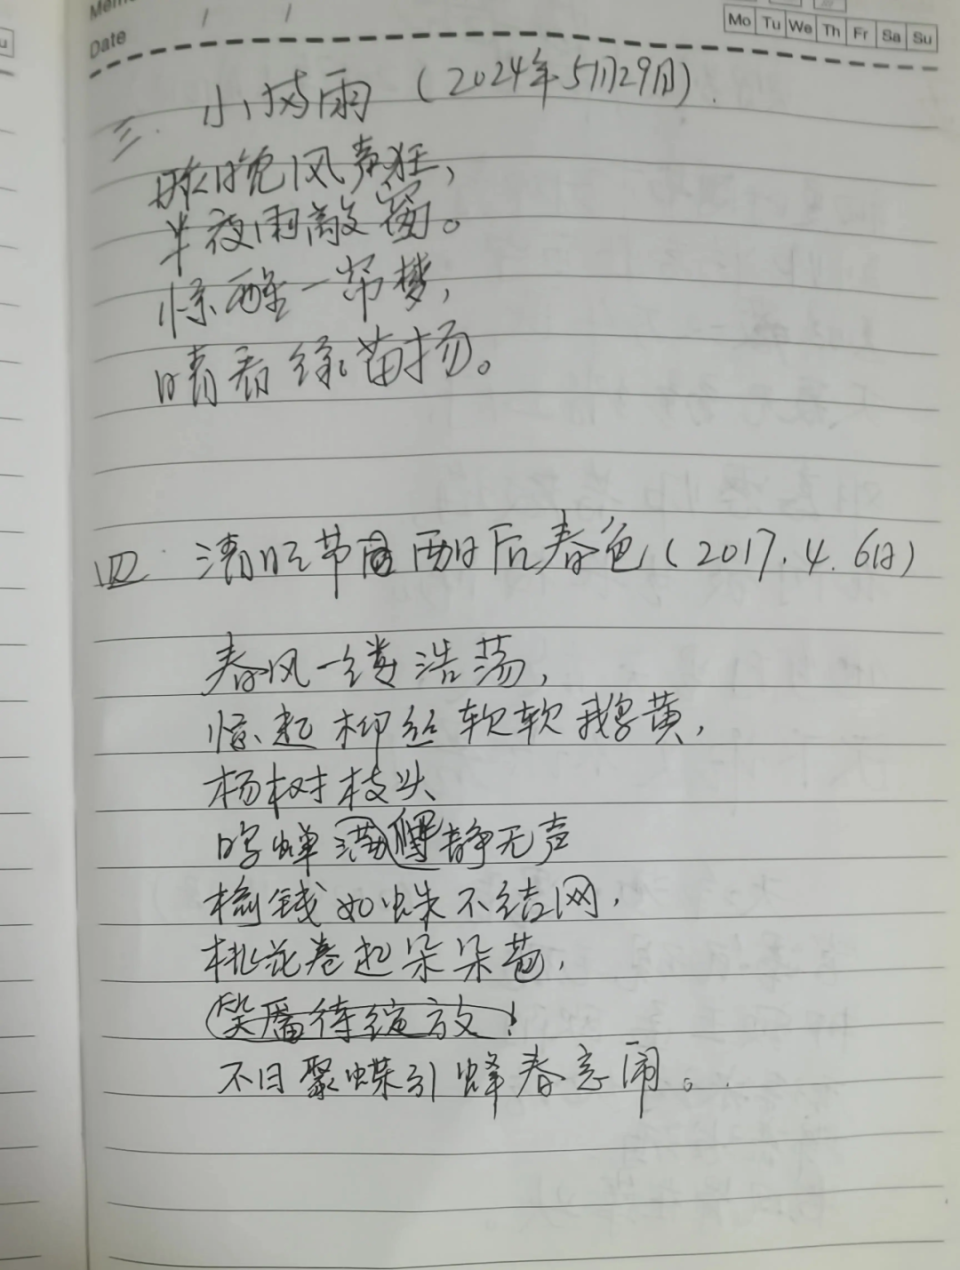 Date / /
Mo Tu We Th Fr Sa Su
三. 小满雨 (2024年5月29日).
昨晚风声狂,
半夜雨敲窗。
惊醒一帘梦,
晴看绿苗扬。
四. 清明节雨后春色 (2017.4.6日)
春风一缕浩荡,
惊起柳丝软软鹅黄,
杨树枝头
鸣蝉满 静无声
榆钱如蛛不结网,
桃花卷起朵朵苞,
笑靥待绽放!
不日聚蝶引蜂春意闹。